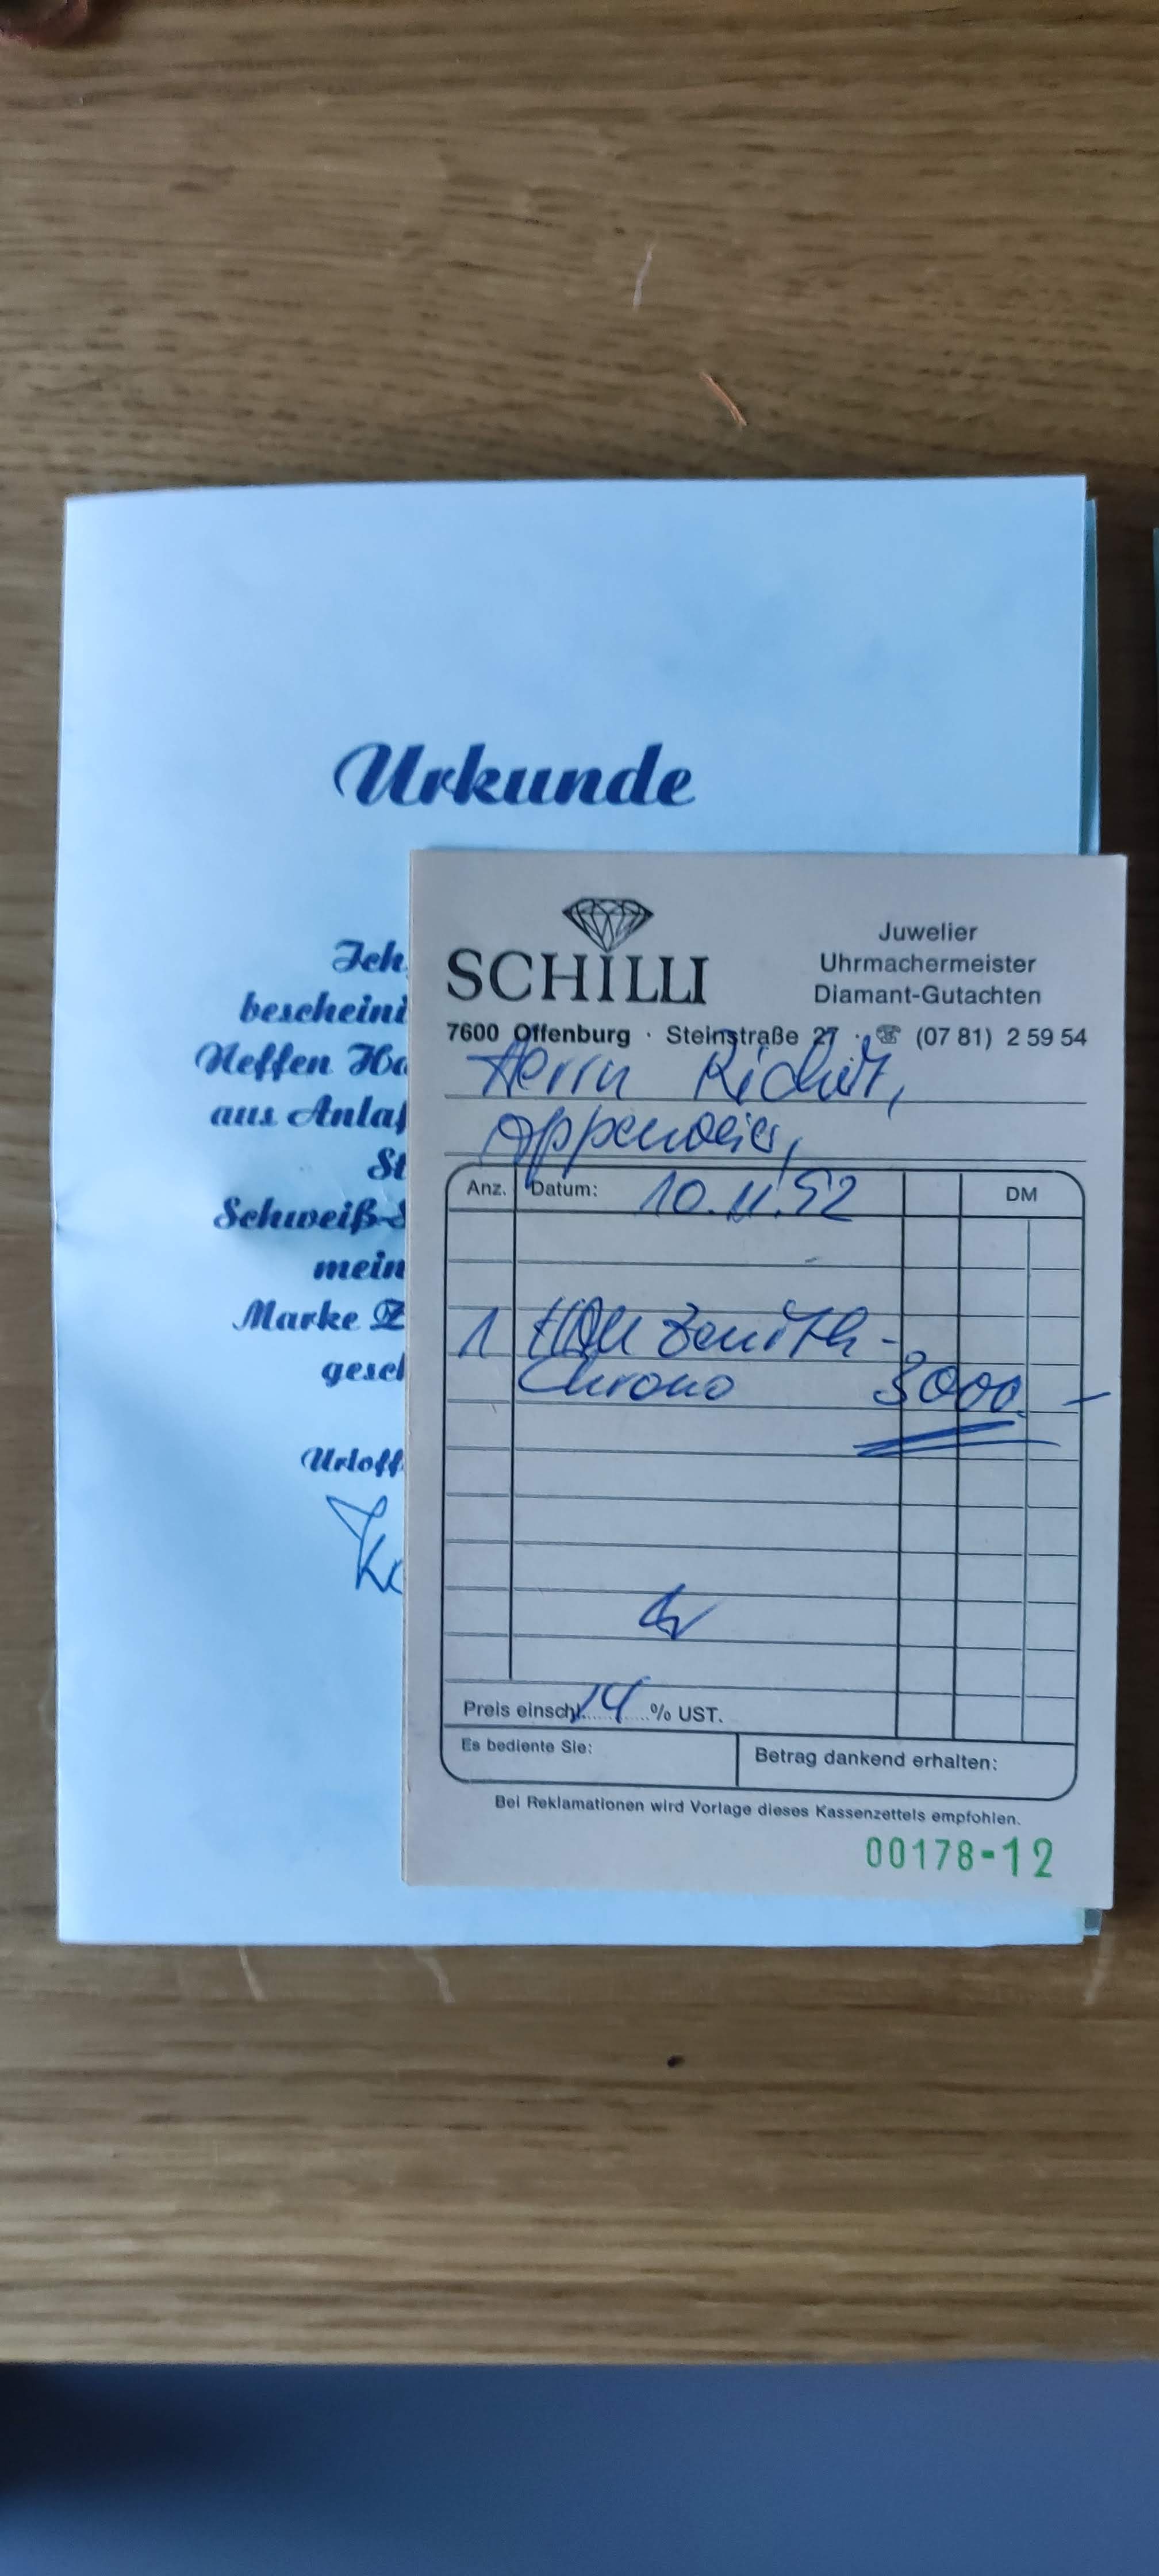 Urkunde
Ich
bescheini
Neffen Ha
aus Anlaß
St
Schweiß-S
mein
Marke Z
gesch
Urloff
SCHILLI
Juwelier
Uhrmachermeister
Diamant-Gutachten
7600 Offenburg · Steinstraße 27 · ☏ (07 81) 2 59 54
Herrn
Appenweier,
Anz. Datum: 10.11.92 DM
1 HAU Zenith-
Chrono 3000.-
Preis einschl. 14 % UST.
Es bediente Sie:
Betrag dankend erhalten:
Bei Reklamationen wird Vorlage dieses Kassenzettels empfohlen.
00178-12